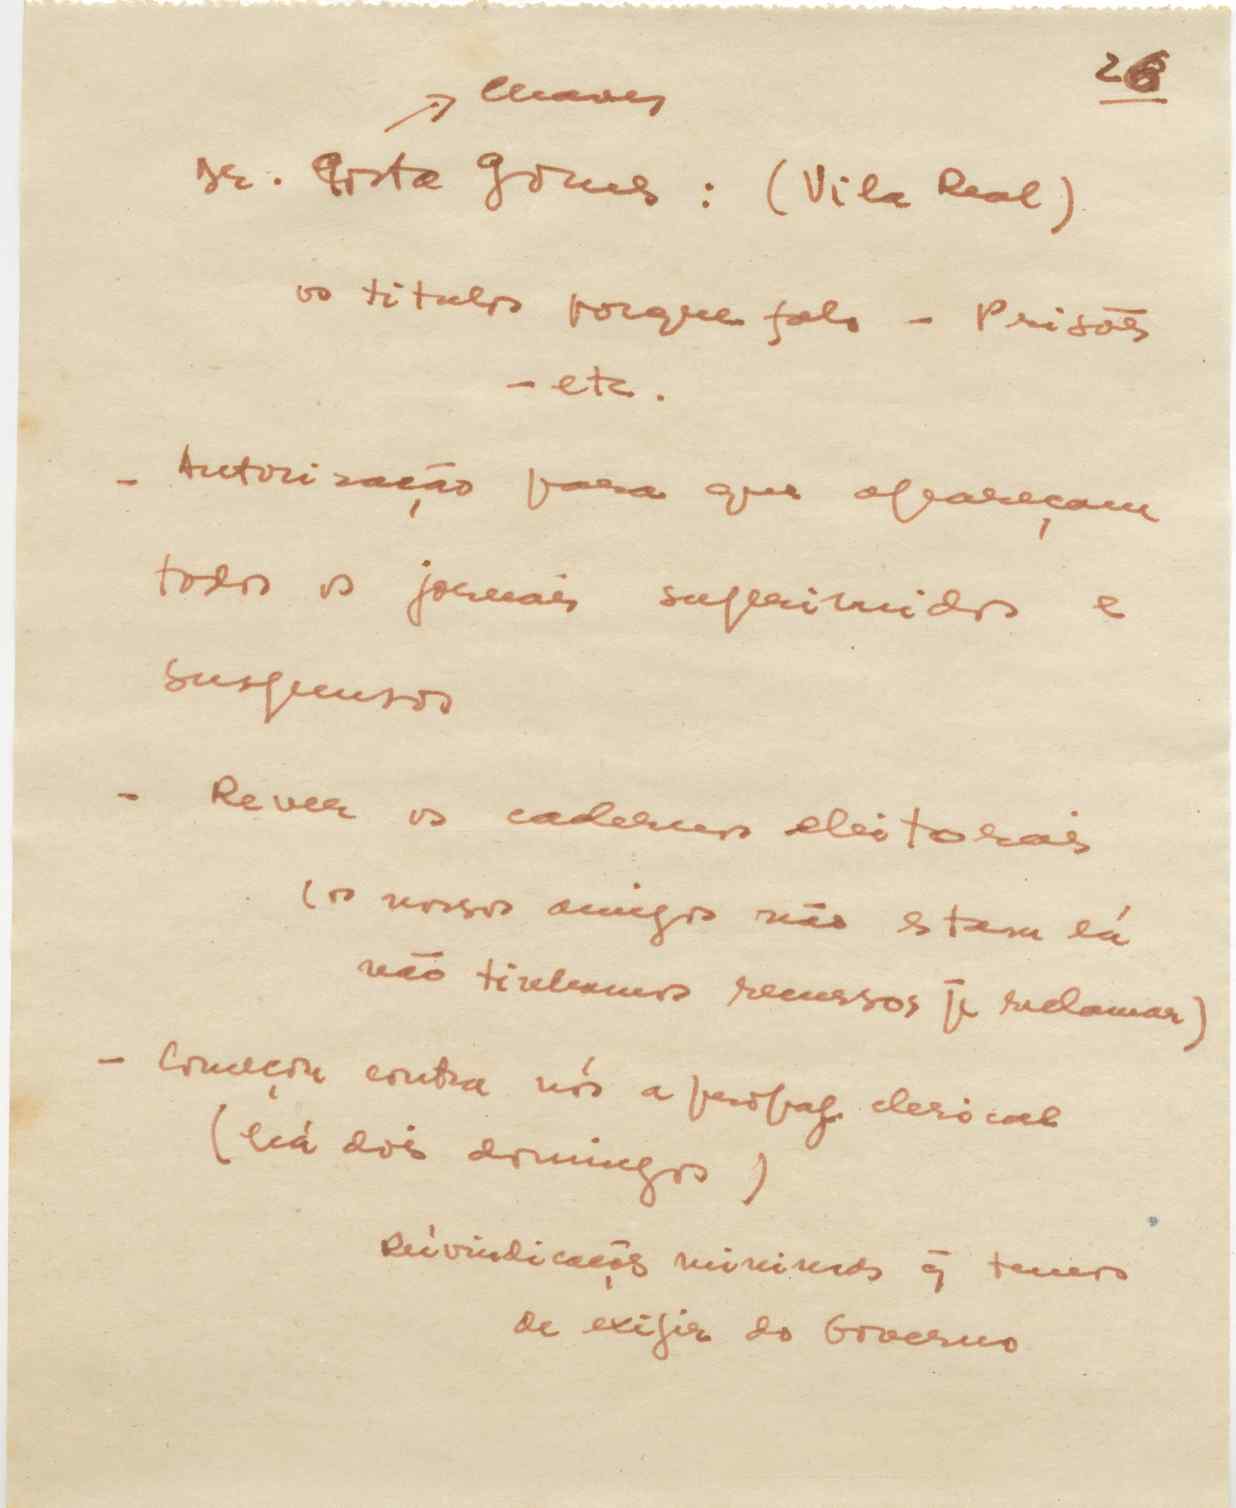 26
Chaves
Dr. Costa Gomes : (Vila Real)
os titulos porque falo - Prisões
- etc.
- Autorização para que apareçam
todos os jornais suprimidos e
suspensos
- Rever os cadernos eleitorais
(os nossos amigos não estam lá
não tinhamos recursos p̄ reclamar)
- Começou contra nós a propag. clerical
(há dois domingos)
Reivindicações minimas q̄ temos
de exigir do Governo